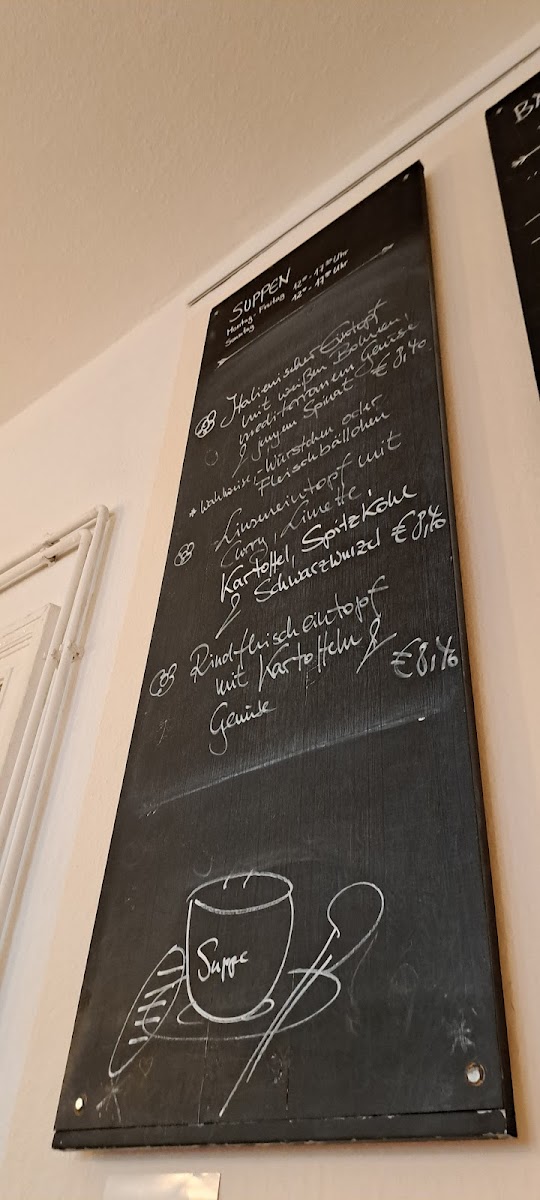 SUPPEN
Montag - Freitag 12°° - 17°° Uhr
Sonntag 12°° - 17°° Uhr
Italienischer Eintopf
mit weißen Bohnen,
mediterranem Gemüse
& jungem Spinat € 8,40
* wahlweise: Würstchen oder
Fleischbällchen
Linseneintopf mit
Curry, Limette
Kartoffel, Spitzkohl
& Schwarzwurzel € 8,40
Rindfleischeintopf
mit Kartoffeln &
Gemüse € 8,40
Suppe
BA